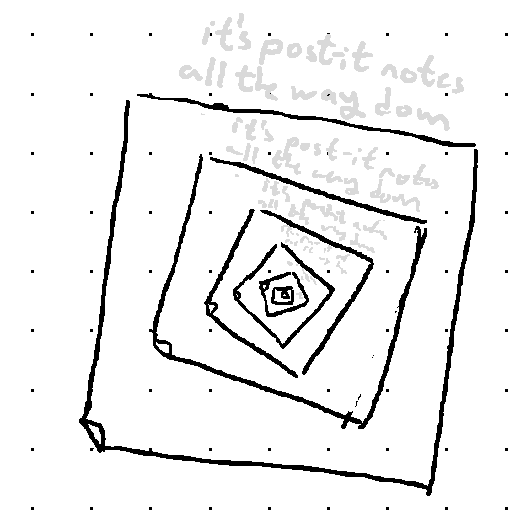 it's post-it notes
all the way down
it's post-it notes
all the way down
it's post-it notes
all the way down